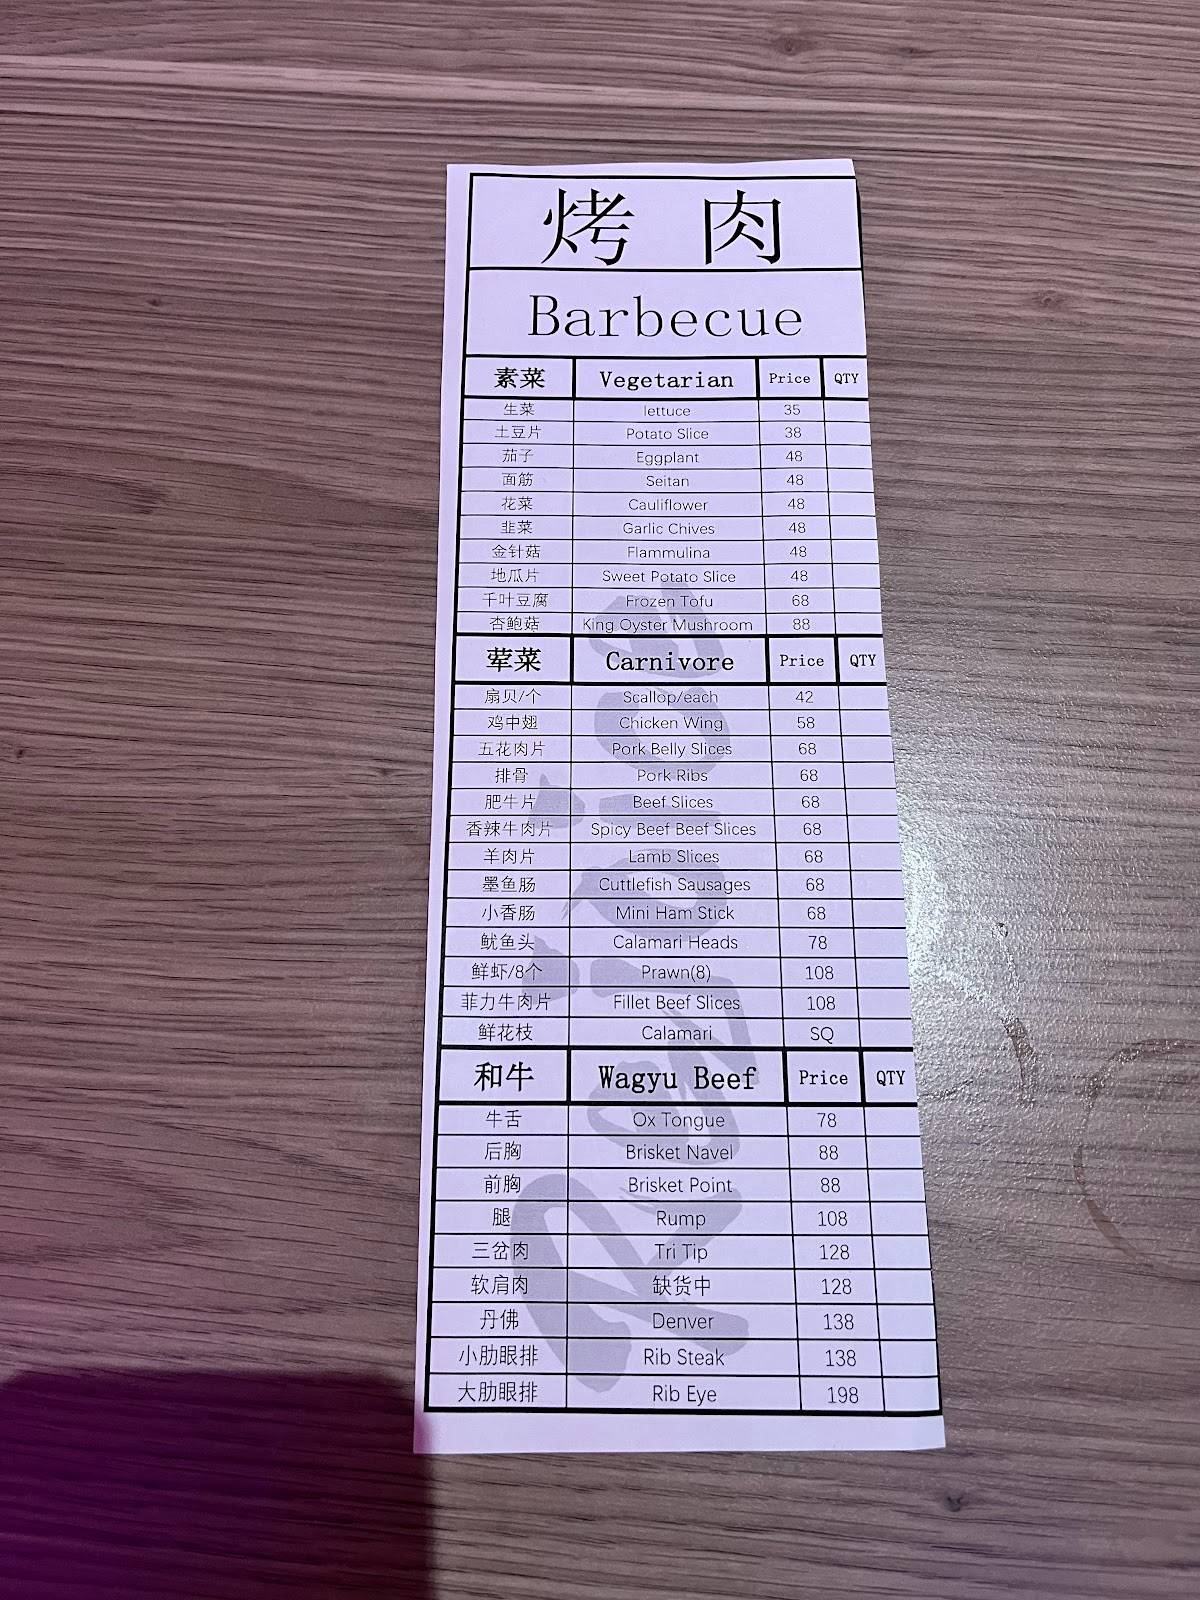 烤 肉
Barbecue
素菜 Vegetarian Price QTY
生菜 lettuce 35
土豆片 Potato Slice 38
茄子 Eggplant 48
面筋 Seitan 48
花菜 Cauliflower 48
韭菜 Garlic Chives 48
金针菇 Flammulina 48
地瓜片 Sweet Potato Slice 48
千叶豆腐 Frozen Tofu 68
杏鲍菇 King Oyster Mushroom 88
荤菜 Carnivore Price QTY
扇贝/个 Scallop/each 42
鸡中翅 Chicken Wing 58
五花肉片 Pork Belly Slices 68
排骨 Pork Ribs 68
肥牛片 Beef Slices 68
香辣牛肉片 Spicy Beef Beef Slices 68
羊肉片 Lamb Slices 68
墨鱼肠 Cuttlefish Sausages 68
小香肠 Mini Ham Stick 68
鱿鱼头 Calamari Heads 78
鲜虾/8个 Prawn(8) 108
菲力牛肉片 Fillet Beef Slices 108
鲜花枝 Calamari SQ
和牛 Wagyu Beef Price QTY
牛舌 Ox Tongue 78
后胸 Brisket Navel 88
前胸 Brisket Point 88
腿 Rump 108
三岔肉 Tri Tip 128
软肩肉 缺货中 128
丹佛 Denver 138
小肋眼排 Rib Steak 138
大肋眼排 Rib Eye 198